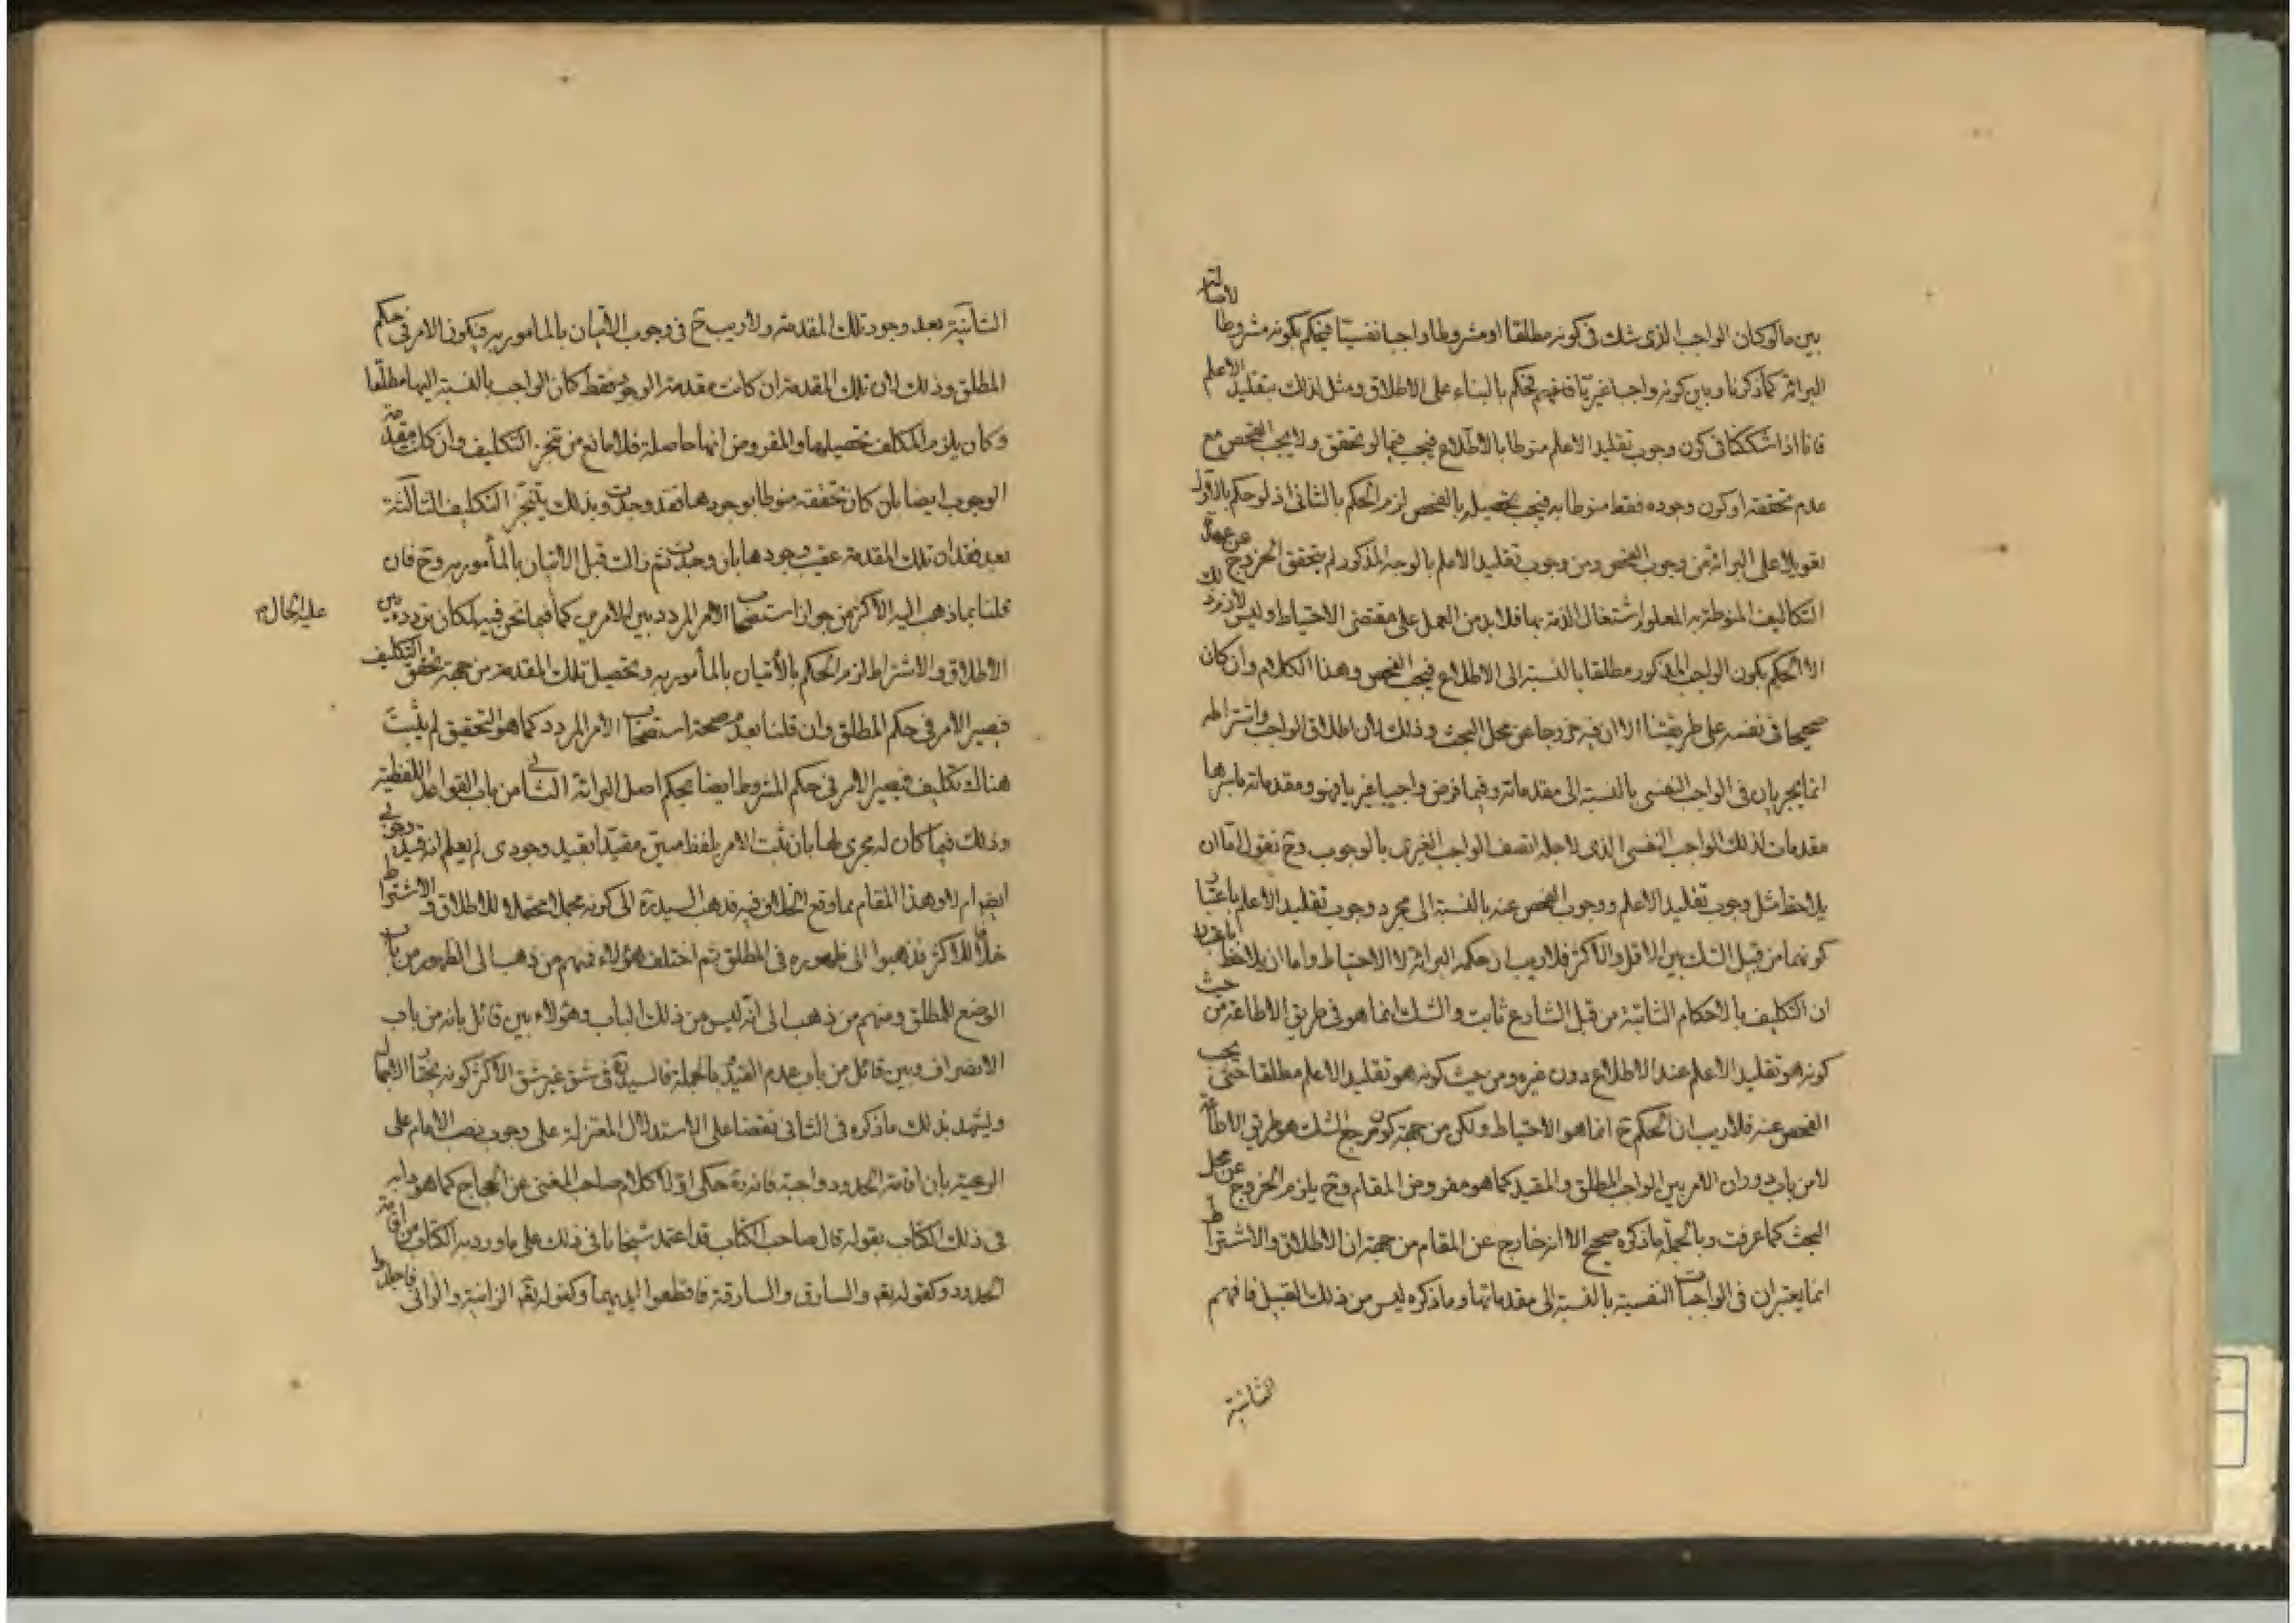 بين ما لو كان الواجب الذى شك فى كونه مطلقا او مشروطا واجبا نفسيّا فيحكم بكونه مشروطا لاصالة
البرائة كما ذكرنا وبين كونه واجبا غيريّا فيحكم بالبناء على الاطلاق ومثل لذلك بتقليد الاعلم
فانا اذا شككنا فى كون وجوب تقليد الاعلم منوطا بالاطّلاع فيجب فيما لو تحقق ولا يجب الفحص مع
عدم تحققه او كون وجوده فقط منوطا به فيجب تحصيله بالفحص لزم الحكم بالثانى اذ لو حكم بالاوّل
تعويلا على البرائة من وجوب الفحص ومن وجوب تقليد الاعلم بالوجه المذكور لم يتحقق الخروج عن عهدة
التكاليف المنوطة به المعلوم اشتغال الذمة بها فلابد من العمل على مقتضى الاحتياط وليس لازم ذلك
الا الحكم بكون الواجب المذكور مطلقا بالنسبة الى الاطلاع فيجب الفحص وهذا الكلام وان كان
صحيحا فى نفسه على طريقتنا الا ان فيه خروجا عن محل البحث وذلك لان اطلاق الواجب واشتراطه
انما يجريان فى الواجب النفسى بالنسبة الى مقدماته وفيما فرض واجبا غيريا فهو ومقدماته باسرها
مقدمات لذلك الواجب النفسى الذى لاجله اتصف الواجب الغيرى بالوجوب وح نقول امّا ان
يلاحظ مثل وجوب تقليد الاعلم ووجوب الفحص عنه بالنسبة الى مجرد وجوب تقليد الاعلم باعتبار
كونهما من قبيل الشك بين الاقل والاكثر فلا ريب ان حكمه البرائة لا الاحتياط واما ان يلاحظ باعتبار
ان التكليف بالاحكام الثابتة من قبل الشارع ثابت والشك انما هو فى طريق الاطاعة من حيث
كونه هو تقليد الاعلم عند الاطلاع دون غيره ومن حيث كونه هو تقليد الاعلم مطلقا حتى يجب
الفحص عنه فلا ريب ان الحكم ح انما هو الاحتياط ولكن من جهة كون مرجع الشك هو طريق الاطاعة
لا من باب دوران الامر بين الواجب المطلق والمقيد كما هو مفروض المقام وح يلزم الخروج عن محل
البحث كما عرفت وبالجملة ما ذكره صحيح الا انه خارج عن المقام من جهة ان الاطلاق والاشتراط
انما يعتبران فى الواجبات النفسية بالنسبة الى مقدماتها وما ذكره ليس من ذلك القبيل فافهم
الثانية
الثانية بعد وجود تلك المقدمة ولا ريب ح فى وجوب الاتيان بالمامور به فيكون الامر فى حكم
المطلق وذلك لان تلك المقدمة ان كانت مقدمة الوجود فقط كان الواجب بالنسبة اليها مطلقا
وكان يلزم المكلف تحصيلها والمفروض انها حاصلة فلا مانع من تنجز التكليف وان كانت مقدمة
الوجوب ايضا بان كان تحققه منوطا بوجودها فقد وجدت وبذلك يتنجّز التكليف الثالثة
بعد فقدان تلك المقدمة عقيب وجودها بان وجدت ثم زالت قبل الاتيان بالمأمور به وح فان
قلنا بما ذهب اليه الاكثر من جواز استصحاب الامر المردد بين الامرين كما فيما نحن فيه لمكان تردده بين
عليه الحال
الاطلاق والاشتراط لزم الحكم بالاتيان بالمأمور به وتحصيل تلك المقدمة من جهة تحقق التكليف
فيصير الامر فى حكم المطلق وان قلنا بعدم صحة استصحاب الامر المردد كما هو التحقيق لم يثبت
هناك تكليف فيصير الامر فى حكم المشروط ايضا بحكم اصل البرائة الثانى من باب القواعد اللفظية
وذلك فيما كان له مجرى لها بان ثبت الامر بلفظ مبيّن مقيّدا بقيد وجودى لم يعلم انه قيد وجوبى
ايضا ام لا وهذا المقام مما وقع الخلاف فيه فذهب السيد ره الى كونه مجملا محتملا للاطلاق والاشتراط
خلافا للاكثر فذهبوا الى ظهوره فى المطلق ثم اختلف هؤلاء فمنهم من ذهب الى الظهور من باب
الوضع للمطلق ومنهم من ذهب الى انه ليس من ذلك الباب وهؤلاء بين قائل بانه من باب
الانصراف وبين قائل من باب عدم القيد وبالجملة فالسيد ره فى شق غير شق الاكثر كونه بحقّ الاجمال
وليشهد بذلك ما ذكره فى الشافى نقضا على الاستدلال المعتزلة على وجوب نصب الامام على
الرعية بان اقامة الحدود واجبة فانه ره حكى اولا كلام صاحب المغنى عن الحجاج كما هو دابه
فى ذلك الكتاب بقوله قال صاحب الكتاب قد اعتمد شيخانا فى ذلك على ما ورد به الكتاب من اقامة
الحدود وكقوله تعه والسارق والسارقة فاقطعوا ايديهما وكقوله تعه الزانية والزانى فاجلدوا